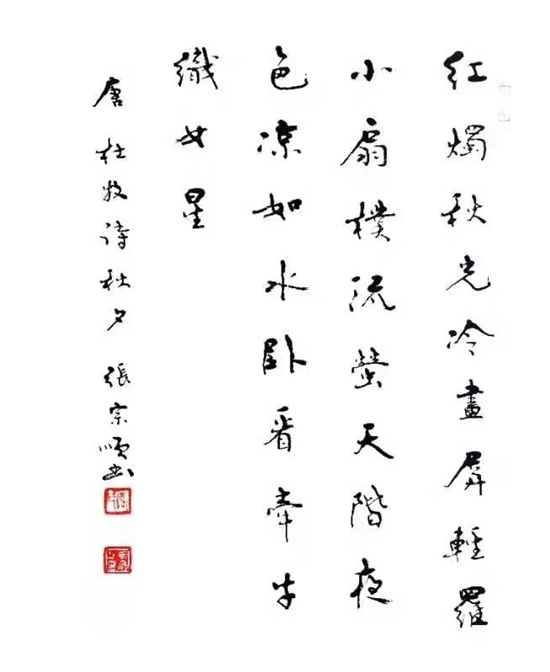 红烛秋光冷畫屏輕羅
小扇樸流螢天階夜
色凉如水卧看牽牛
織女星
唐杜牧诗秋夕張宗順书